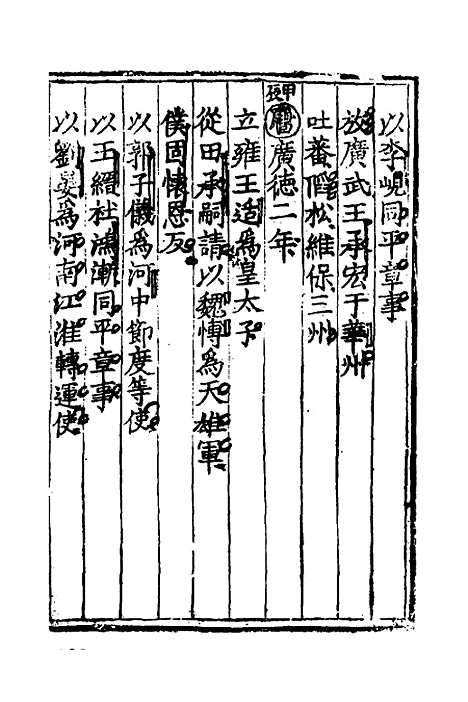 以李峴同平章事
放廣武王承宏于華州
吐蕃陷松維保三州
甲辰 唐 廣徳二年
立雍王适為皇太子
從田承嗣請以魏愽為天雄軍
僕固懷恩反
以郭子儀為河中節度等使
以王縉杜鴻漸同平章事
以劉晏為河南江淮轉運使